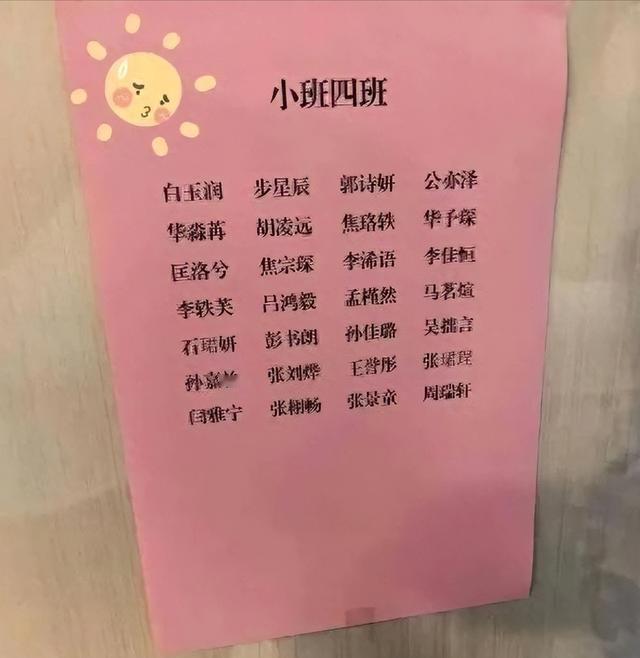 小班四班
白玉润 步星辰 郭诗妍 公亦泽
华淼苒 胡凌远 焦珞轶 华予琛
匡洛兮 焦宗琛 李浠语 李佳恒
李轶芙 吕鸿毅 孟槿然 马茗煊
石珺妍 彭书朗 孙佳璐 吴摅言
孙嘉 张刘烨 王誉彤 张珺珵
闫雅宁 张栩畅 张景童 周瑞轩